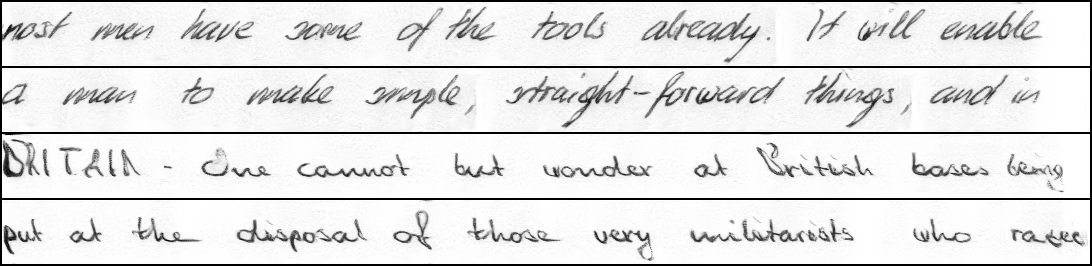 most men have some of the tools already. It will enable
a man to make simple, straight-forward things, and in
BRITAIN - One cannot but wonder at British bases being
put at the disposal of those very militarists who